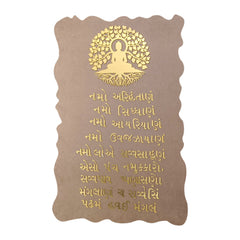 નમો અરિહંતાણં
નમો સિધ્ધાણં
નમો આયરિયાણં
નમો ઉવજઝાયાણં
નમો લોએ સવ્વસાહૂણં
એસો પંચ નમુક્કારો,
સવ્વપાવપ્પણાસણો
મંગલાણં ચ સવ્વેસિં
પઢમં હવઈ મંગલં